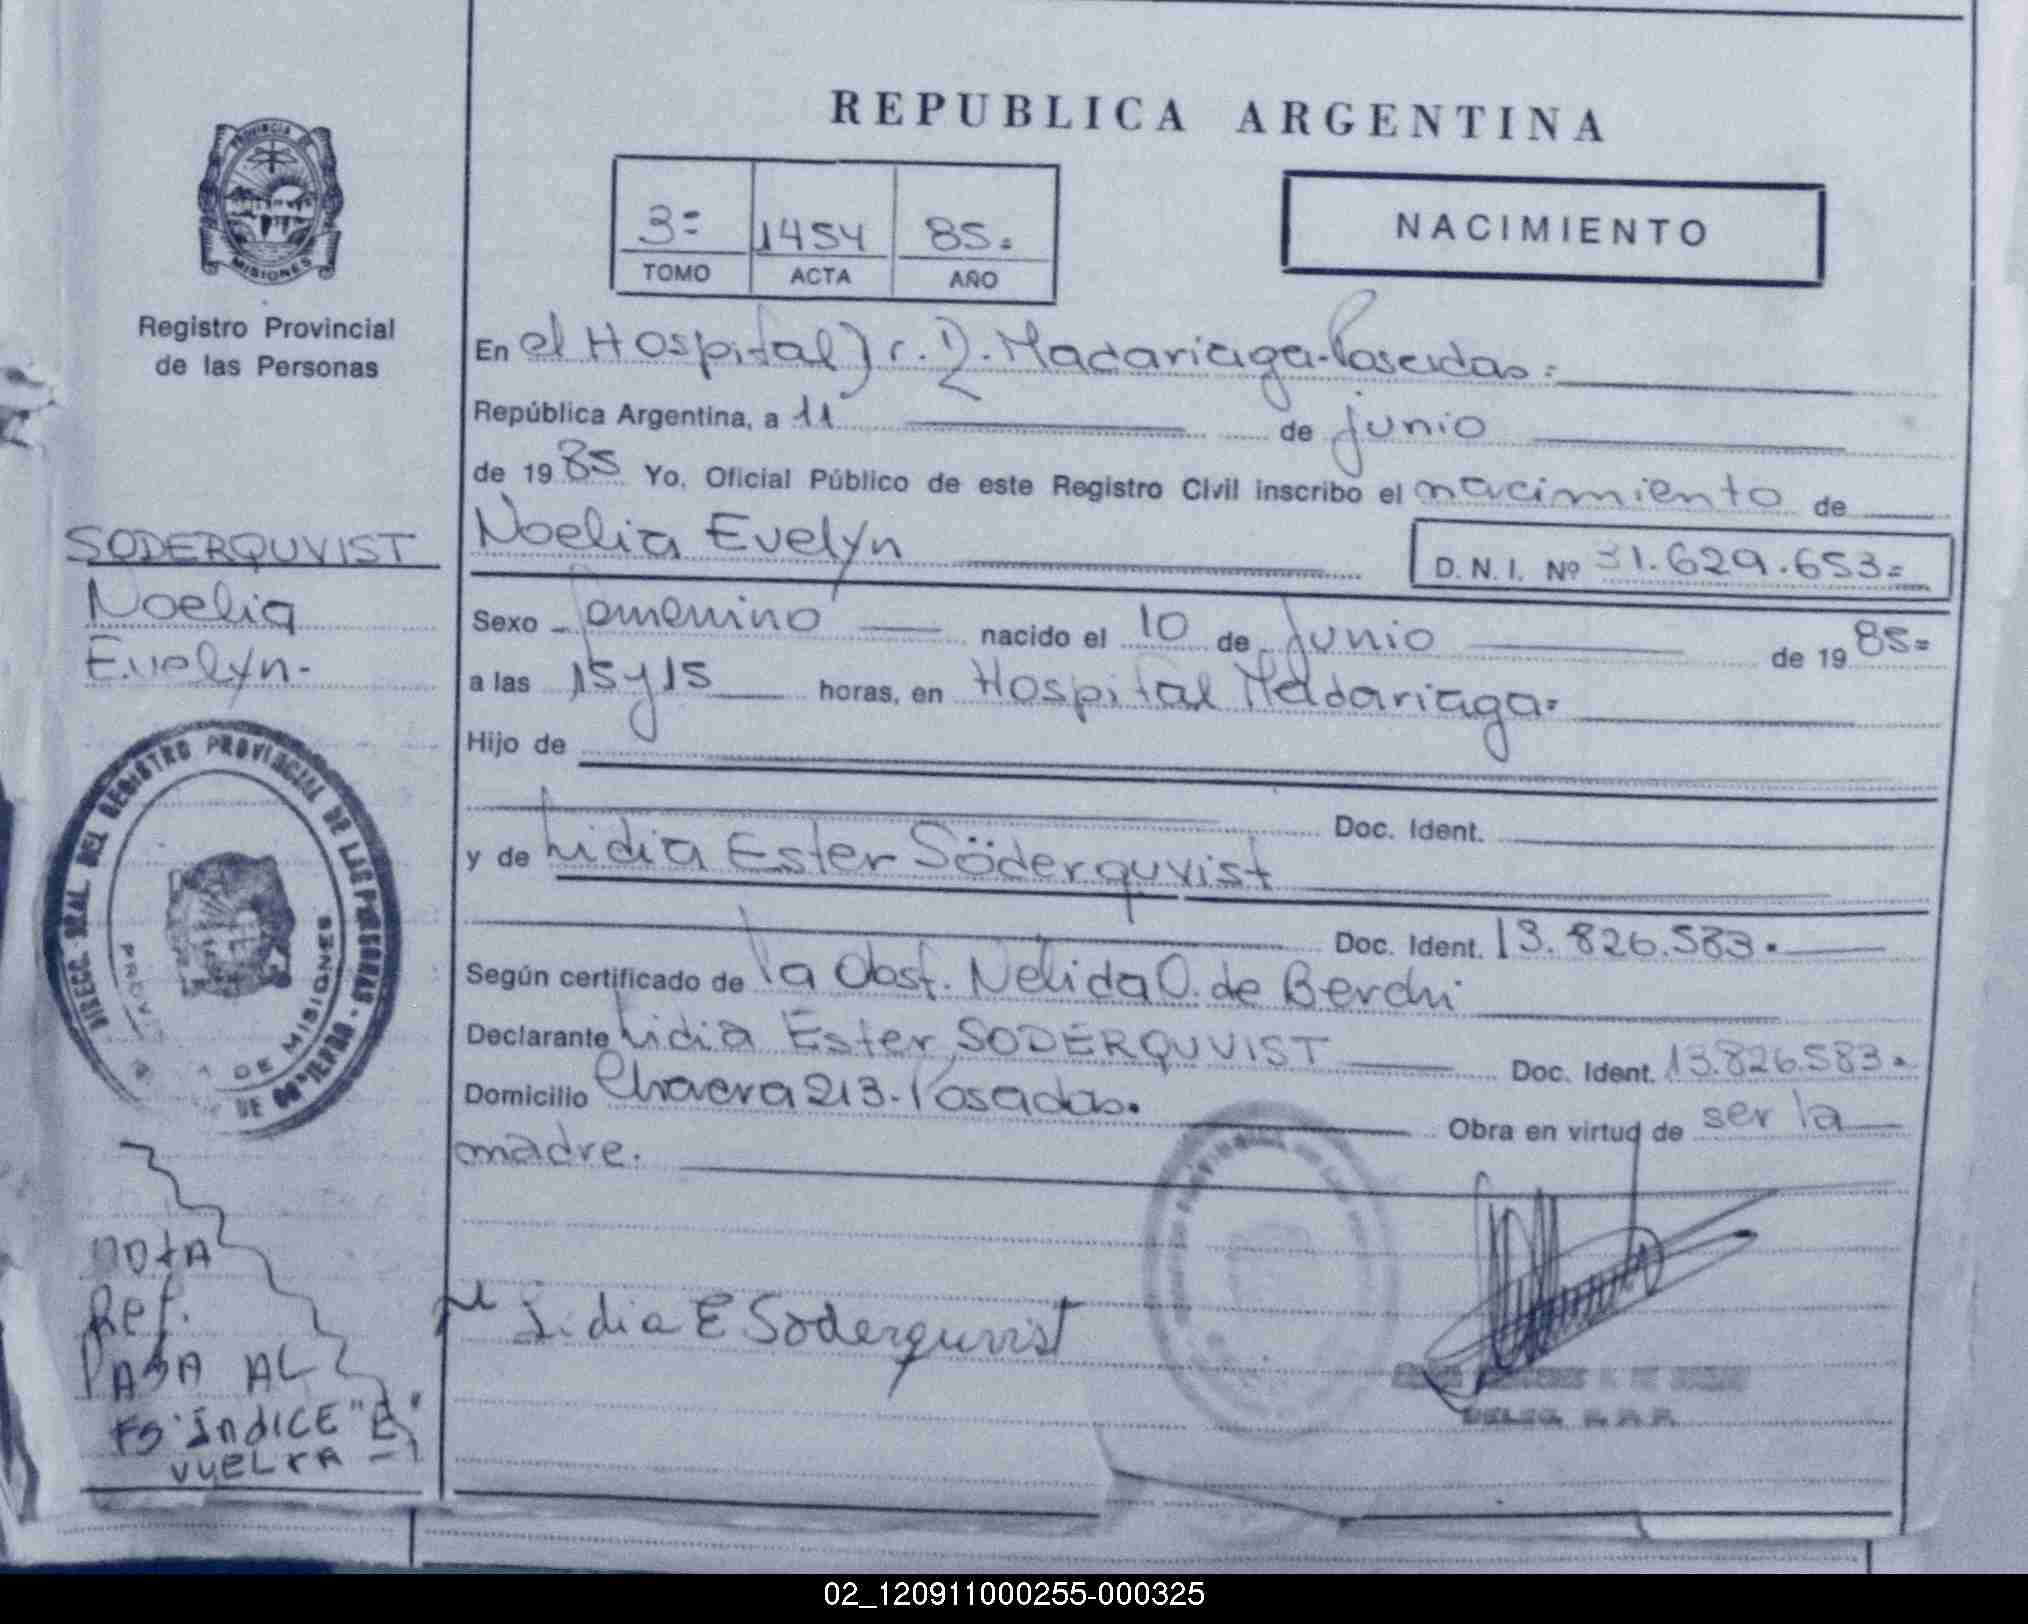 REPUBLICA ARGENTINA
PROVINCIA DE
MISIONES
Registro Provincial
de las Personas
3=
1454
85=
TOMO
ACTA
AÑO
NACIMIENTO
En el Hospital Dr. R. Madariaga-Posadas=
República Argentina, a 11 de junio
de 1985 Yo, Oficial Público de este Registro Civil inscribo el nacimiento de
Noelia Evelyn
D.N.I. Nº 31.629.653=
SODERQUVIST
Noelia
Evelyn-
Sexo femenino nacido el 10 de junio de 1985=
a las 15 y 15 horas, en Hospital Madariaga=
Hijo de
Doc. Ident.
y de Lidia Ester Söderquvist
Doc. Ident. 13.826.583.
Según certificado de la Obst. Nelida O. de Berchi
Declarante Lidia Ester SODERQUVIST Doc. Ident. 13.826.583=
Domicilio 213-Posadas. Obra en virtud de ser la
madre.
DIRECC. GRAL. DEL REGISTRO PROVINCIAL DE LAS PERSONAS
PROVI DE MISIONES
Lidia E Soderquvist
NOTA
Ref.
PASA AL
Fo INDICE "E"
VUELTA
02_120911000255-000325